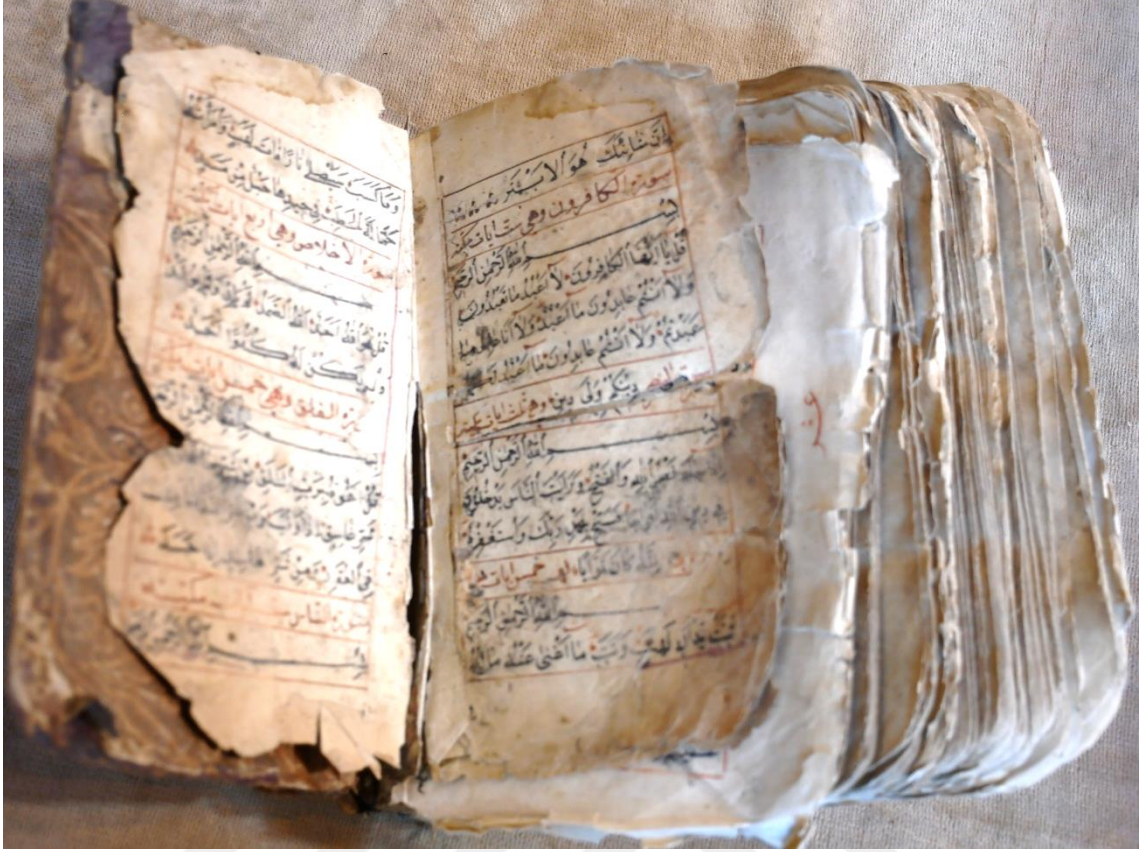 إن شانئك هو الابتر
سورة الكافرون وهي ست ايات مكية
بسم الله الرحمن الرحيم
قل يا ايها الكافرون لا اعبد ما تعبدون
ولا انتم عابدون ما اعبد ولا انا عابد ما
عبدتم ولا انتم عابدون ما اعبد
دينكم ولى دين وهي ثلث ايات
بسم الله الرحمن الرحيم
نصر الله والفتح ورايت الناس يدخلون
في دين الله فسبح بحمد ربك واستغفره
انه كان توابا خمس ايات
بسم الله الرحمن الرحيم
تبت يدا ابي لهب وتب ما اغنى عنه ماله
وما كسب سيصلى نارا ذات لهب وامراته
حمالة الحطب في جيدها حبل من مسد
سورة الاخلاص وهي اربع ايات
بسم الله الرحمن الرحيم
قل هو الله احد الله الصمد لم يلد ولم يولد
ولم يكن له كفوا احد
سورة الفلق وهي خمس ايات
بسم الله الرحمن الرحيم
قل اعوذ برب الفلق من شر
في العقد ومن شر حاسد
سورة الناس
بسم الله الرحمن الرحيم